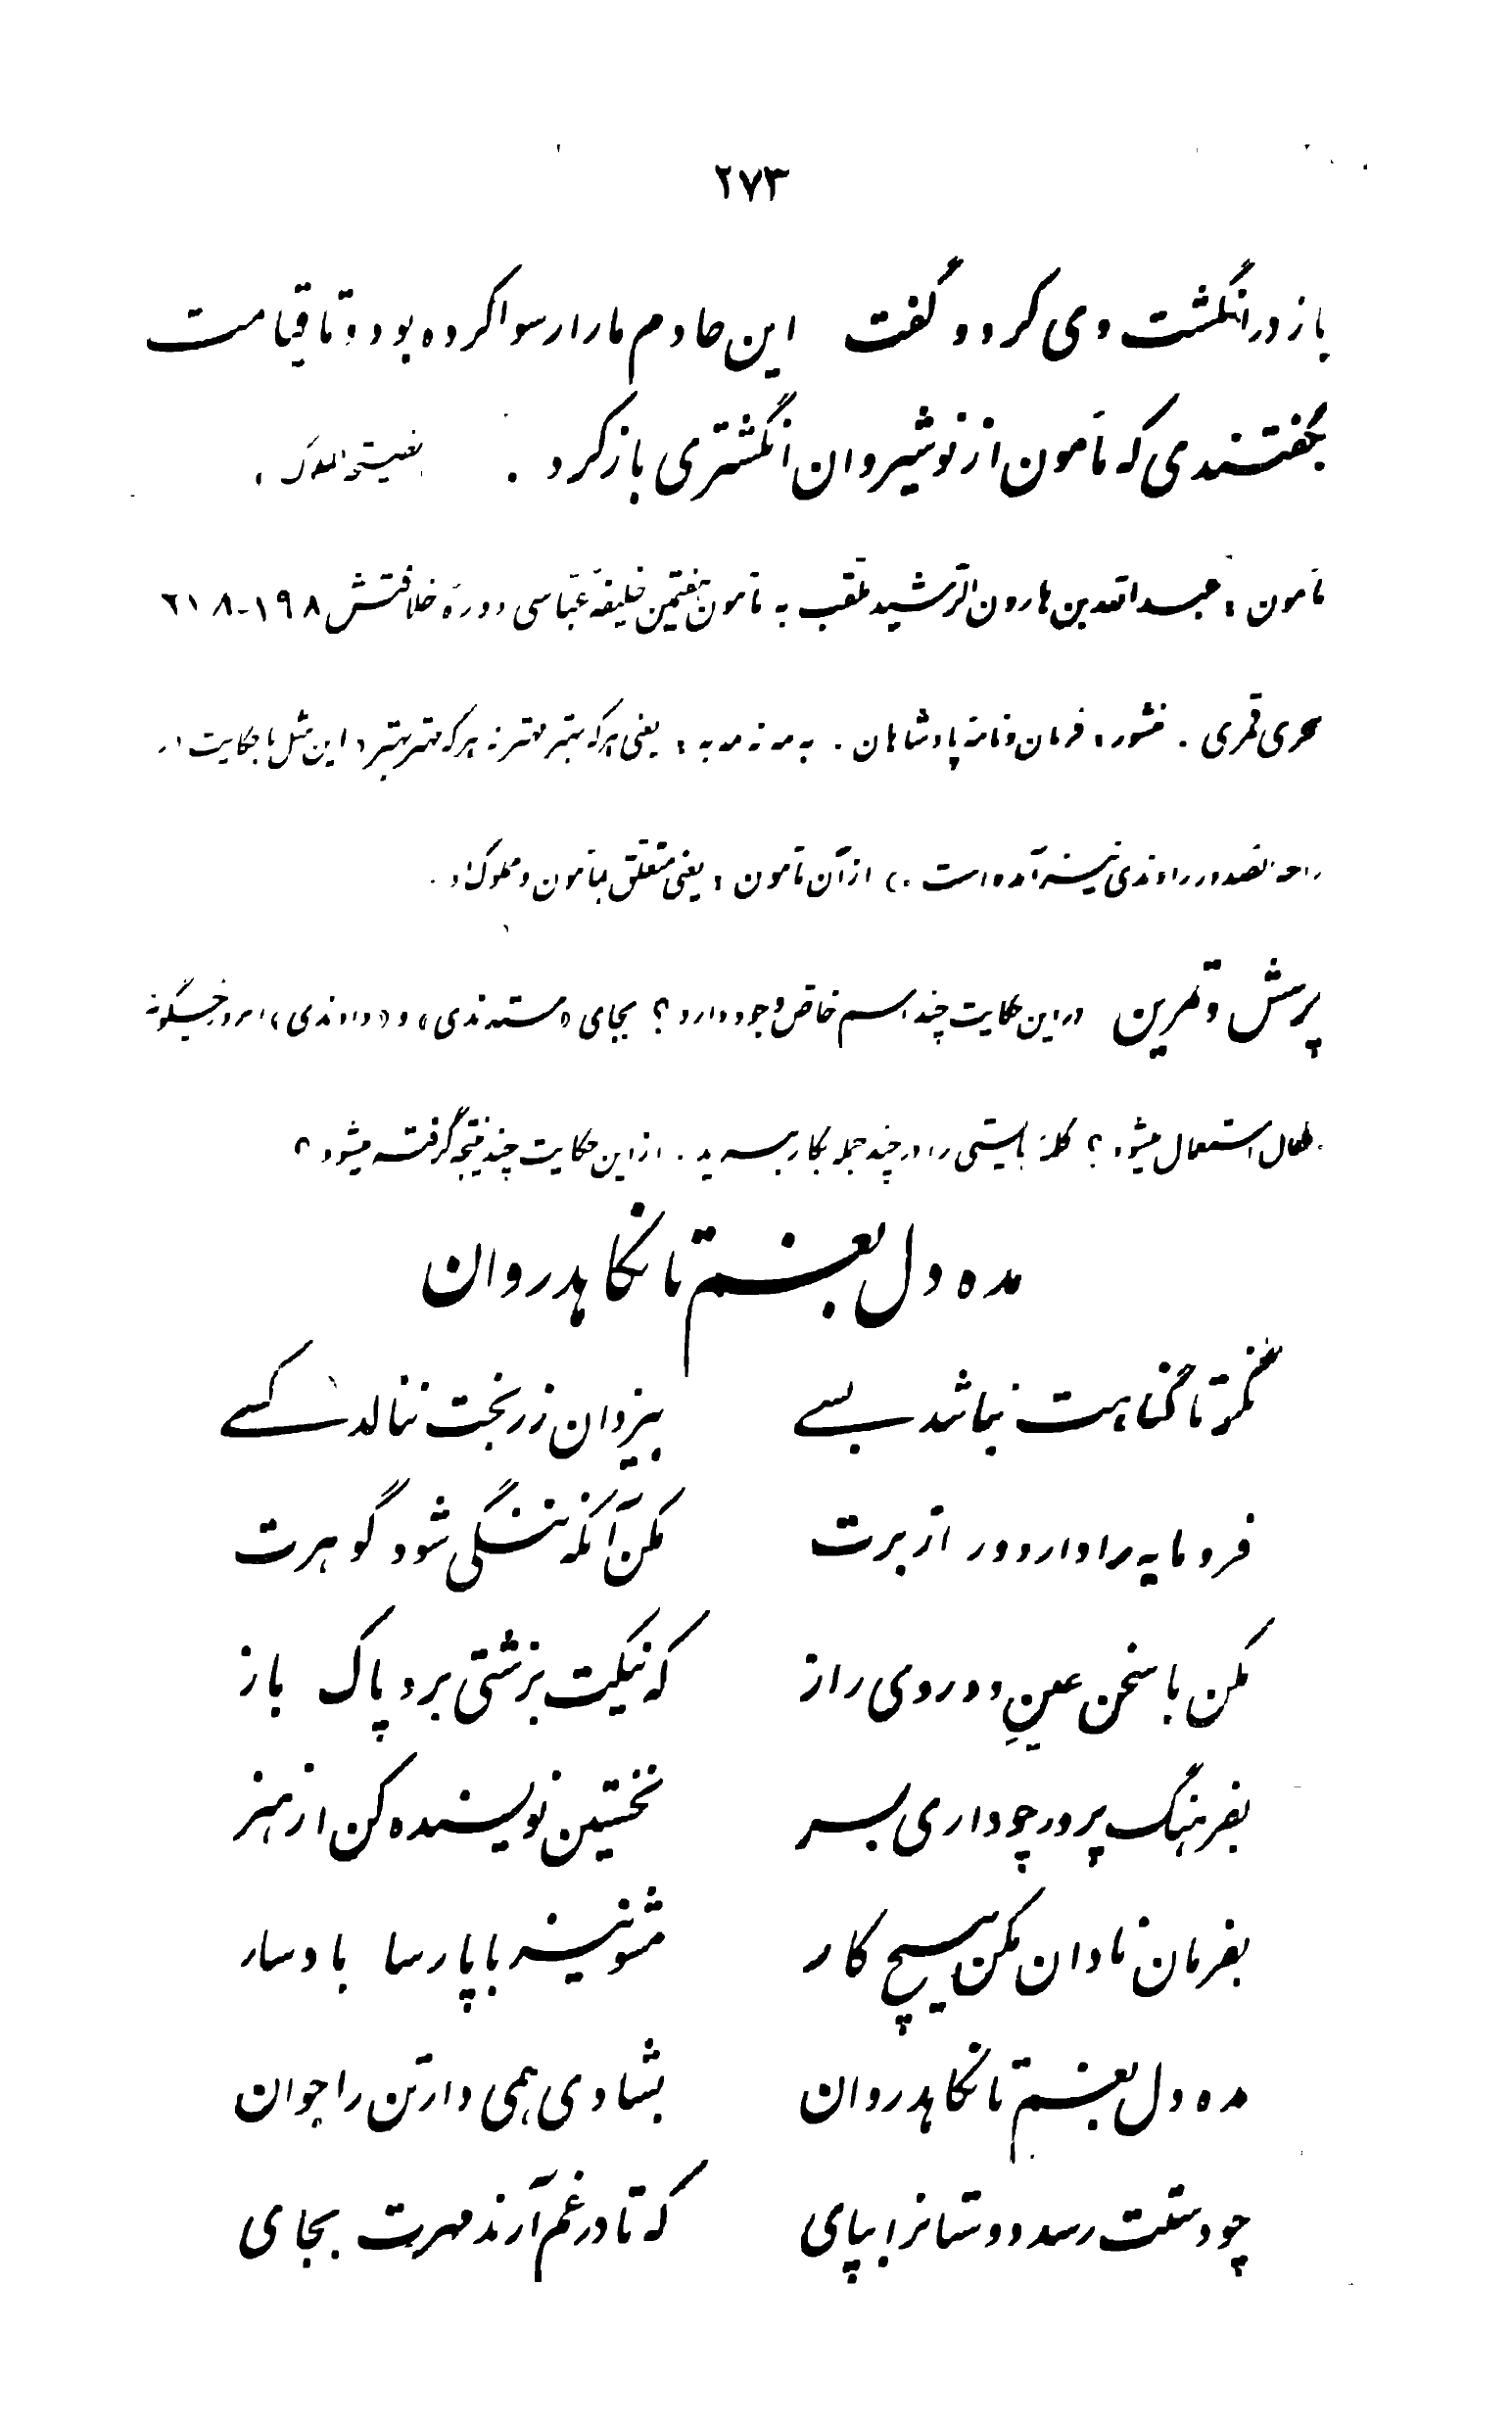 ۲۷۳
باز در انگشت وی کرد و گفت این خادم ما را رسوا کرده بود و تا قیامت
بگفتندی که مأمون از نوشیروان انگشتری باز کرد . نصیحةالملوک ،
مأمون : عبداللّه بن هارون الرّشید ملقّب به مأمون هفتمین خلیفهٔ عبّاسی دورهٔ خلافتش ۱۹۸-۲۱۸
هجری قمری . منشور : فرمان و نامهٔ پادشاهان . به مه نه مه به : یعنی هرکه بهتر مهتر نه هرکه مهتر بهتر ( این مثل با حکایت در
راحة الصدور راوندی نیز آمده است . ) از آن مأمون : یعنی متعلّق بمأمون و مملوک او .
پرسش و تمرین در این حکایت چند اسم خاص وجود دارد ؟ بجای « ستدندی » و « دادندی » امروز چگونه
افعال استعمال میشود ؟ کلمهٔ بایستی را در چند جمله بکار ببرید . از این حکایت چه نتیجه گرفته میشود ؟
مده دل بغم تا نکاهد روان
نگر تا گناهت نباشد بسی بیزدان ز رنجت ننالد کسی
فرومایه را دار دور از برت مکن آنکه ننگی شود گوهرت
مکن با سخن‌چینِ دو روی راز که نیکت بزشتی برد پاک باز
بفرهنگ پرور چو داری پسر نخستین نویسنده کن از هنر
بفرمان نادان مکن هیچ کار مشو نیز با پارسا بادسار
مده دل بغم تا نکاهد روان بشادی همی دار تن را جوان
چو دستت رسد دوستانرا بپای که تا در غم آرند مهرت بجای